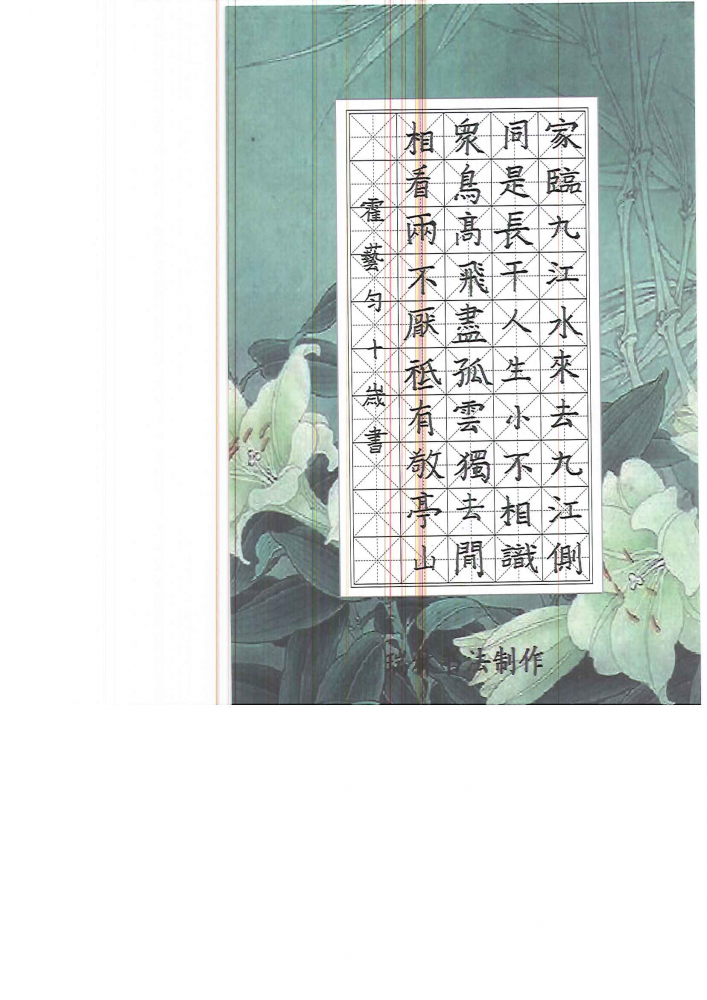 家臨九江水來去九江側
同是長干人生小不相識
眾鳥髙飛盡孤雲獨去閒
相看兩不厭祗有敬亭山
霍藝勻十歲書
法制作